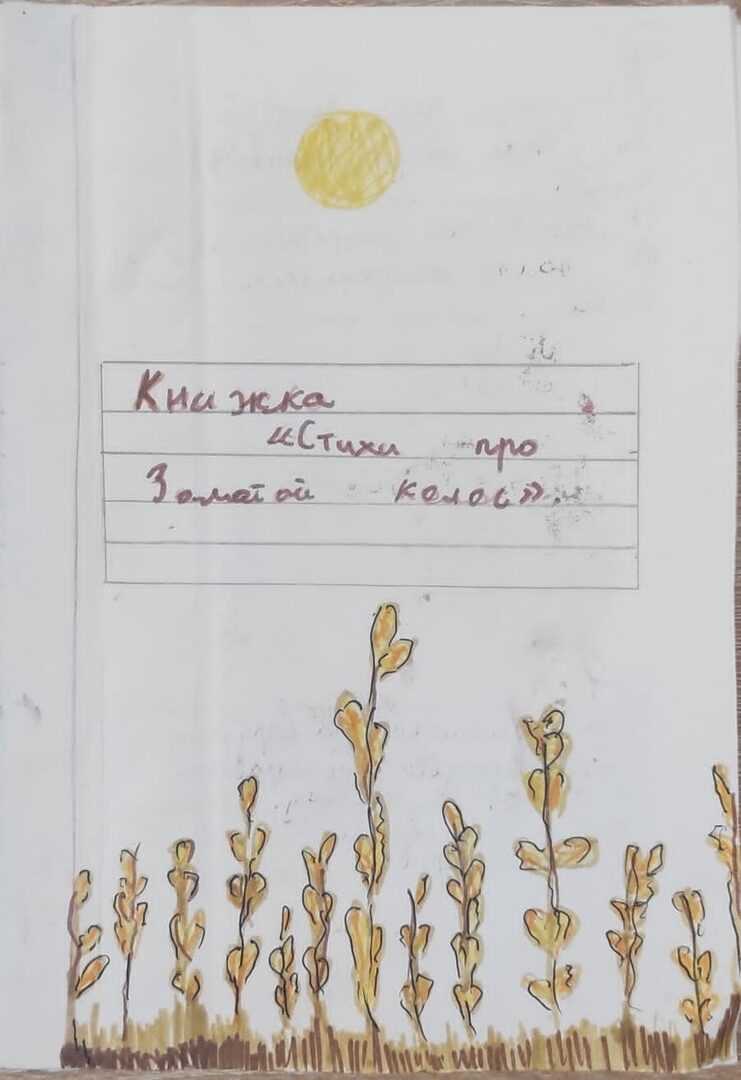 Книжка
«Стихи про
Золотой колос».